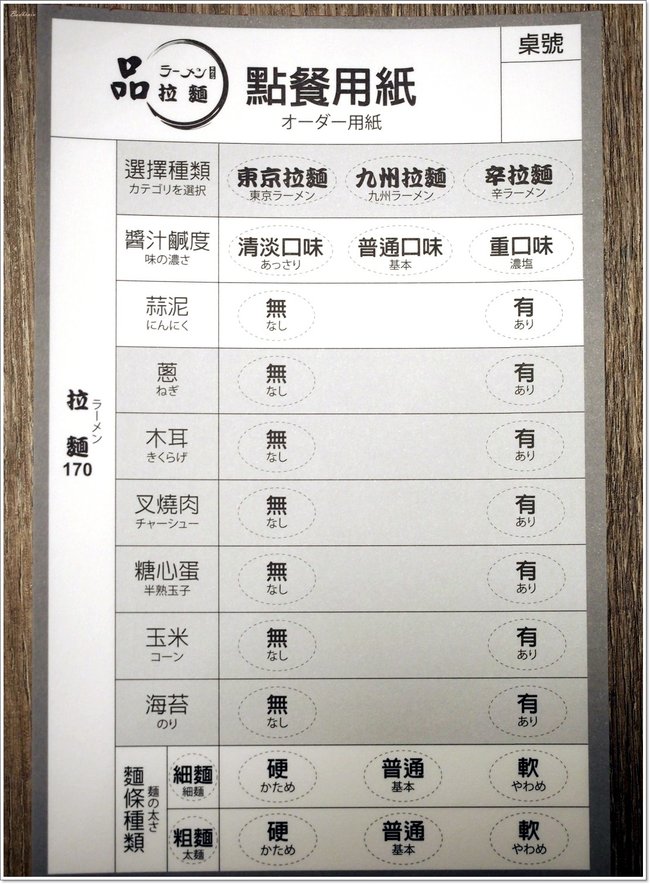 品
ラーメン
拉麵
點餐用紙
オーダー用紙
桌號
拉麵
ラーメン
170
選擇種類
カテゴリを選択
東京拉麵
東京ラーメン
九州拉麵
九州ラーメン
辛拉麵
辛ラーメン
醬汁鹹度
味の濃さ
清淡口味
あっさり
普通口味
基本
重口味
濃塩
蒜泥
にんにく
無
なし
有
あり
蔥
ねぎ
無
なし
有
あり
木耳
きくらげ
無
なし
有
あり
叉燒肉
チャーシュー
無
なし
有
あり
糖心蛋
半熟玉子
無
なし
有
あり
玉米
コーン
無
なし
有
あり
海苔
のり
無
なし
有
あり
麵條種類
麺の太さ
細麵
細麺
硬
かため
普通
基本
軟
やわめ
粗麵
太麺
硬
かため
普通
基本
軟
やわめ